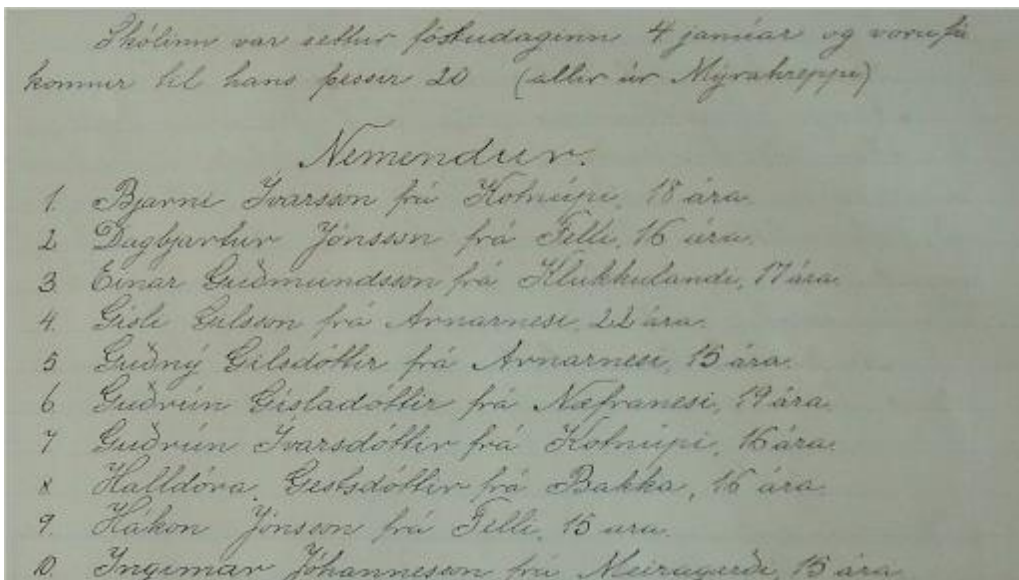 Skólinn var settur föstudaginn 4 janúar og voru þá
komnir til hans þessir 20 (allir úr Mýrahreppi)
Nemendur.
1. Bjarni Ívarsson frá Kotnúpi, 18 ára.
2 Dagbjartur Jónsson frá Felli, 16 ára.
3 Einar Guðmundsson frá Klukkulandi, 17 ára.
4. Gísli Gilsson frá Arnarnesi, 22 ára.
5 Guðný Gilsdóttir frá Arnarnesi, 15 ára.
6 Guðrún Gísladóttir frá Næfranesi, 19 ára.
7 Guðrún Ívarsdóttir frá Kotnúpi, 16 ára.
8 Halldóra Gestsdóttir frá Bakka, 16 ára
9. Hákon Jónsson frá Felli, 15 ára.
10. Ingimar Jóhannesson frá Meiragarði, 15 ára